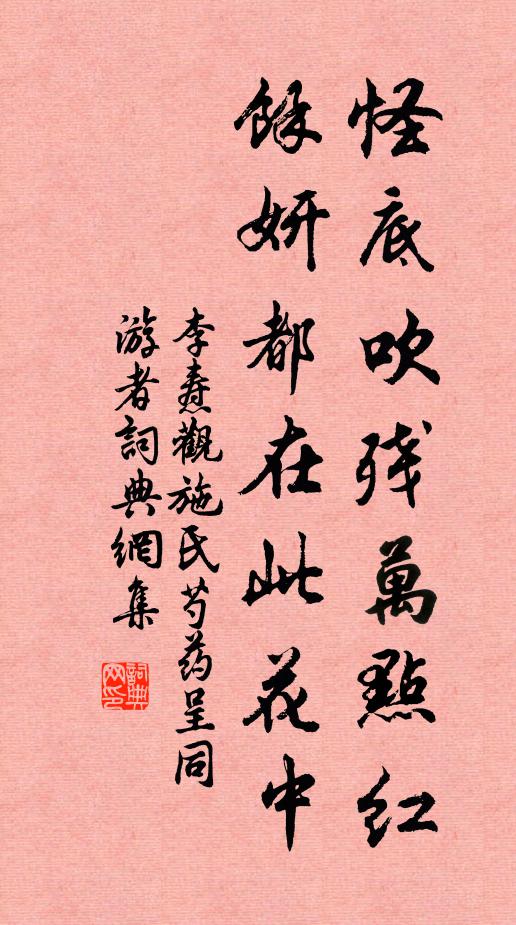 怪底吹残萬點紅
餘妍都在此花中
李燾觀施氏芍药呈同
游者詞典網集
詞典网印